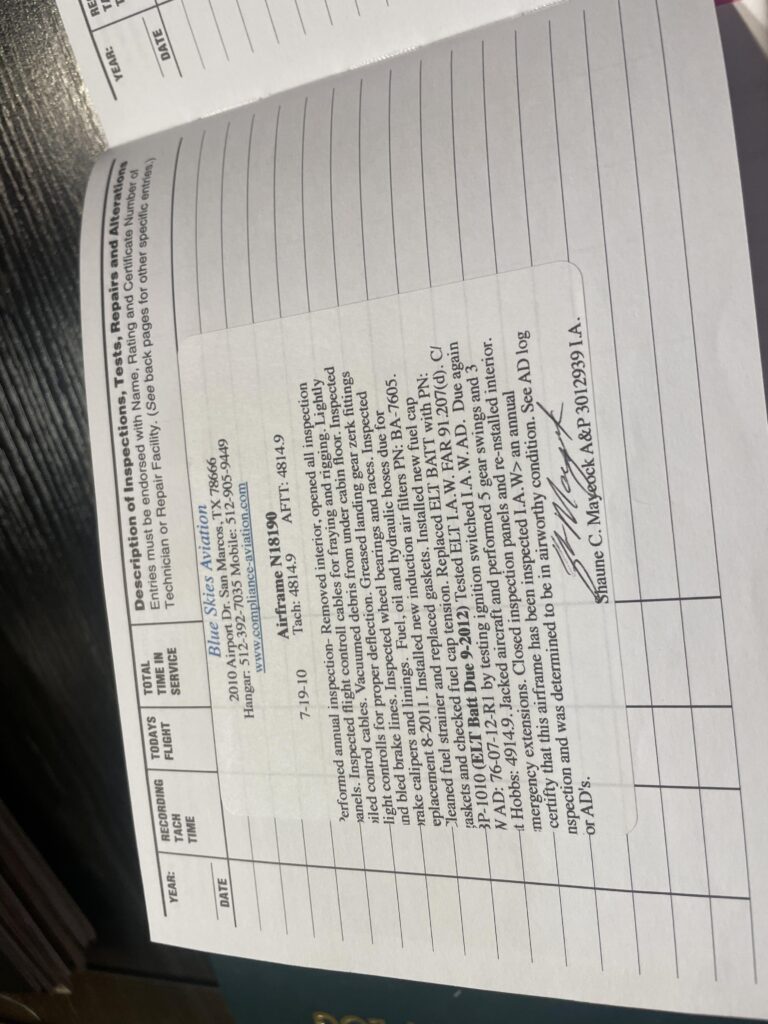 YEAR:
RECORDING
TACH
TIME
TODAYS
FLIGHT
TOTAL
TIME IN
SERVICE
Description of Inspections, Tests, Repairs and Alterations
Entries must be endorsed with Name, Rating and Certificate Number of
Technician or Repair Facility. (See back pages for other specific entries.)
DATE
Blue Skies Aviation
2010 Airport Dr. San Marcos, TX 78666
Hangar: 512-392-7035 Mobile: 512-905-9449
www.compliance-aviation.com
Airframe N18190
7-19-10 Tach: 4814.9 AFTT: 4814.9
Performed annual inspection- Removed interior, opened all inspection
panels. Inspected flight controll cables for fraying and rigging. Lightly
oiled control cables. Vacuumed debris from under cabin floor. Inspected
light controlls for proper deflection. Greased landing gear zerk fittings
and bled brake lines. Inspected wheel bearings and races. Inspected
rake calipers and linings. Fuel, oil and hydraulic hoses due for
eplacement 8-2011. Installed new induction air filters PN: BA-7605.
Cleaned fuel strainer and replaced gaskets. Installed new fuel cap
gaskets and checked fuel cap tension. Replaced ELT BATT with PN:
BP-1010 (ELT Batt Due 9-2012) Tested ELT I.A.W. FAR 91.207(d). C/
W AD: 76-07-12-R1 by testing ignition switched I.A.W. AD. Due again
t Hobbs: 4914.9. Jacked aircraft and performed 5 gear swings and 3
emergency extensions. Closed inspection panels and re-nstalled interior.
certifty that this airframe has been inspected I.A.W> an annual
nspection and was determined to be in airworthy condition. See AD log
or AD's.
Shaune C. Maycock A&P 3012939 I.A.
YEAR:
DATE
RE
TA
T